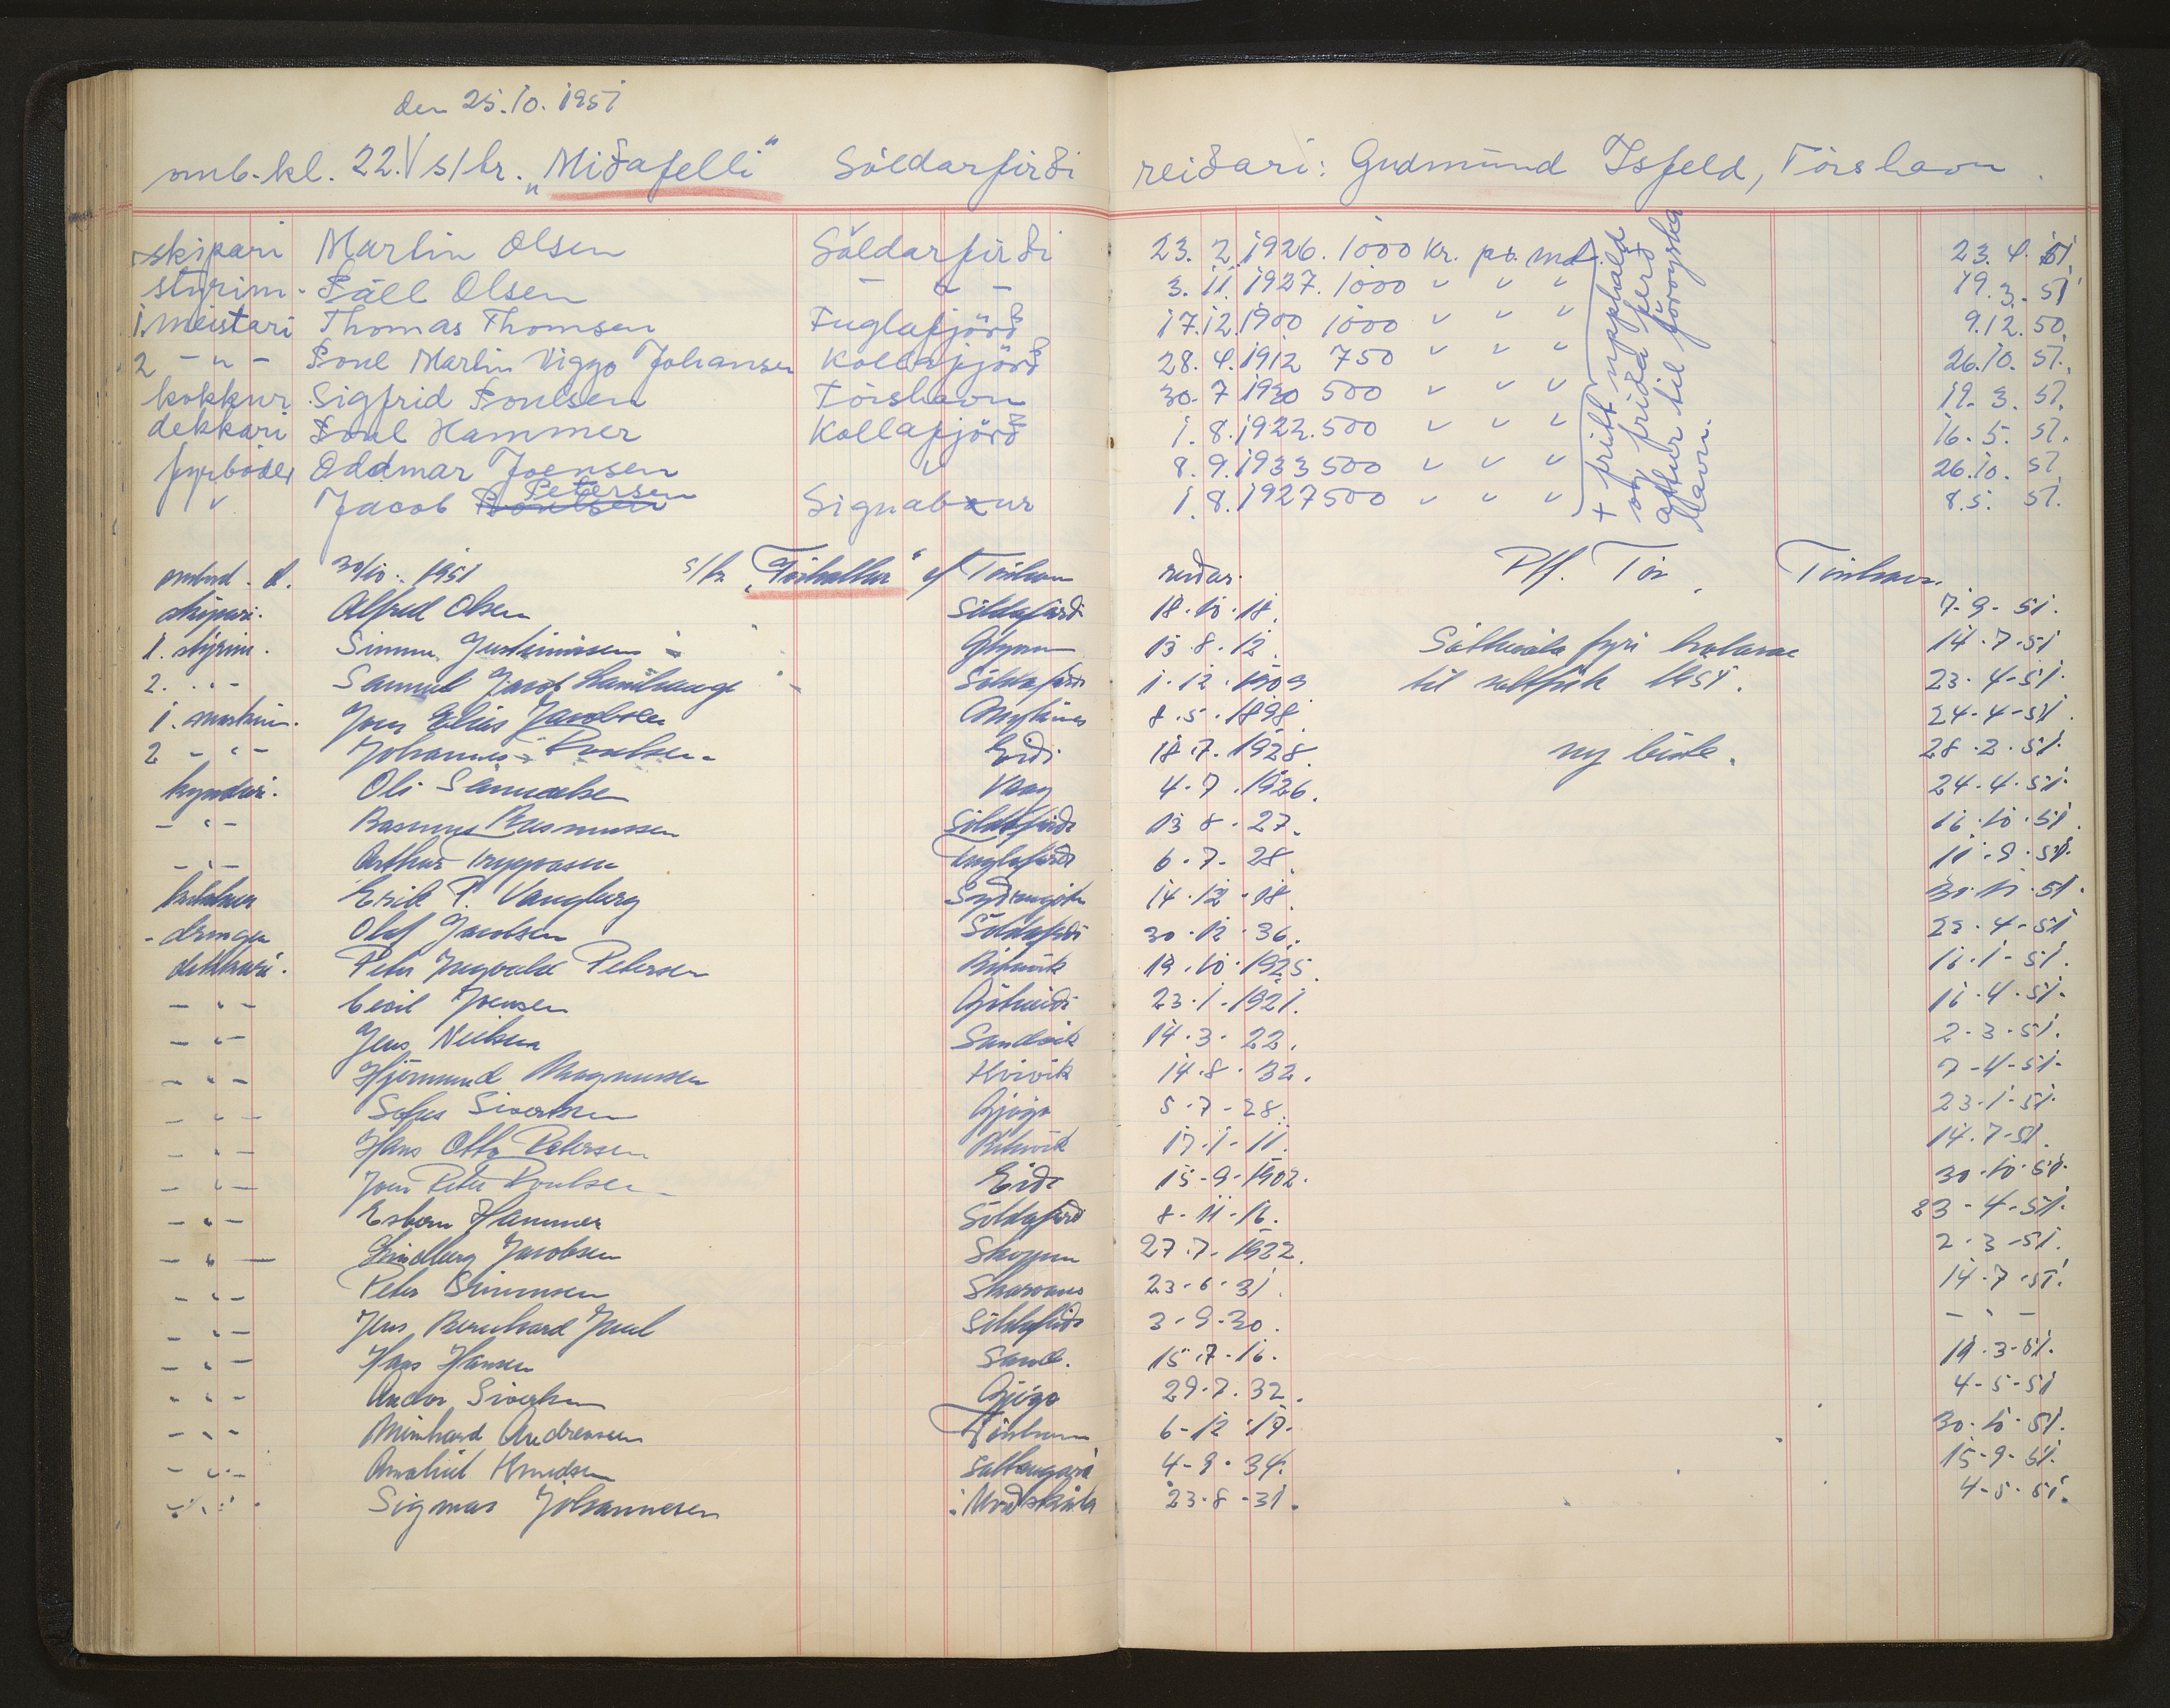 den 25.10.1951
omb. kl. 22. V s/tr. „Miðafelli“ Söldarfirði reiðari: Gudmund Isfeld, Tórshavn
skipari Martin Olsen Söldarfirði 23. 2. 1926. 1000 kr. pr. md. 23. 4. 51.
stýrim. Páll Olsen — " — 3. 11. 1927. 1000 " " " 19. 3. 51
1. meistari Thomas Thomsen Fuglafjörð 17. 12. 1900 1000 " " " 9. 12. 50.
2 — " — Poul Martin Viggo Johansen Kollafjörð 28. 4. 1912 750 " " " 26. 10. 51.
kokkur Sigfrid Poulsen Tórshavn 30. 7 1930 500 " " " 19. 3. 51.
dekkari Poul Hammer Kollafjörð 1. 8. 1922. 500 " " " 16. 5. 51.
fyrbóder Oddmar Joensen " 8. 9. 1933 500 " " " 26. 10. 51
" Jacob Petersen Signabøur 1. 8. 1927 500 " " " 8. 5. 51.
+ fritt uppihald
og frida ferð
aftur til føroyska
havn.
ombod. d. 30/10. 1951 s/tr. „Tórhallur“ of Tórshavn reiðari P/f. Tór, Tórshavn.
skipari. Alfred Olsen Söldafirði 18. 10. 18. 7-9-51.
1. stýrim. Simun Justinussen 13. 8. 12. 14. 7. 51
2. " - Samuel Jacob Söldafirði 1. 12. 1909 til saltfisk 1951. 23. 4-51.
1. Jens Elias Jacobsen 8. 5. 1898. 24-4-51.
2 - " - Johannes Poulsen Eidi 18. 7. 1928. ny 28. 2. 51.
kyndari. Oli Samuelsen Vaag 4. 7. 1926. 24. 4. 51.
- " - Rasmus Rasmussen Söldafirði 13 8. 27. 16. 10. 51.
- " - Arthur Fuglafirði 6. 7. 28. 11. 9. 51.
kokkur Erik P. Vangberg Sydrugötu 14. 12. 18.
drongur Olaf Jacobsen Söldafirði 30. 12. 36. 23. 4-51
dekkari. Peter Ingvald Petersen Rituvík 19. 10. 1925. 16. 1-51.
- " - Cecil Joensen 23. 1. 1921. 16. 4. 51.
- " - Jens Nielsen Sandvík 14. 3. 22. 2. 3. 51.
- " - Hjörmund Magnussen Kvivik 14. 8. 32. 7-4-51.
- " - Sofus Sivertsen Gjógv 5. 7-28. 23. 1-51.
- " - Hans Otto Petersen Rituvík 17. 1-11. 14. 7. 51.
- " - Joen Peter Poulsen Eidi 15-9-1902. 30. 10. 51.
- " - Esbern Hammer Söldafirð 8. 11-16. 23-4-51.
- " - Lindberg Jacobsen Skopun 27. 7. 1922. 2. 3-51.
- " - Peter Simonsen Skarvanes 23. 6. 31. 14. 7. 51.
- " - Jens Bernhard Juul Söldafirði 3. 9. 30. - " -
- " - Hans Hansen Sand. 15. 7-16. 19. 3-51.
- " - Andor Sivertsen Gjógv 29. 7. 32. 4-5-51
- " - Meinhard Andreasen Tórshavn 6-12. 19. 30. 10. 51.
- " - Knudsen Saltangará 4-9. 34. 15-9-51.
- " - Sigmar Johannesen Norðskála 23. 8-31. 4-5. 51.